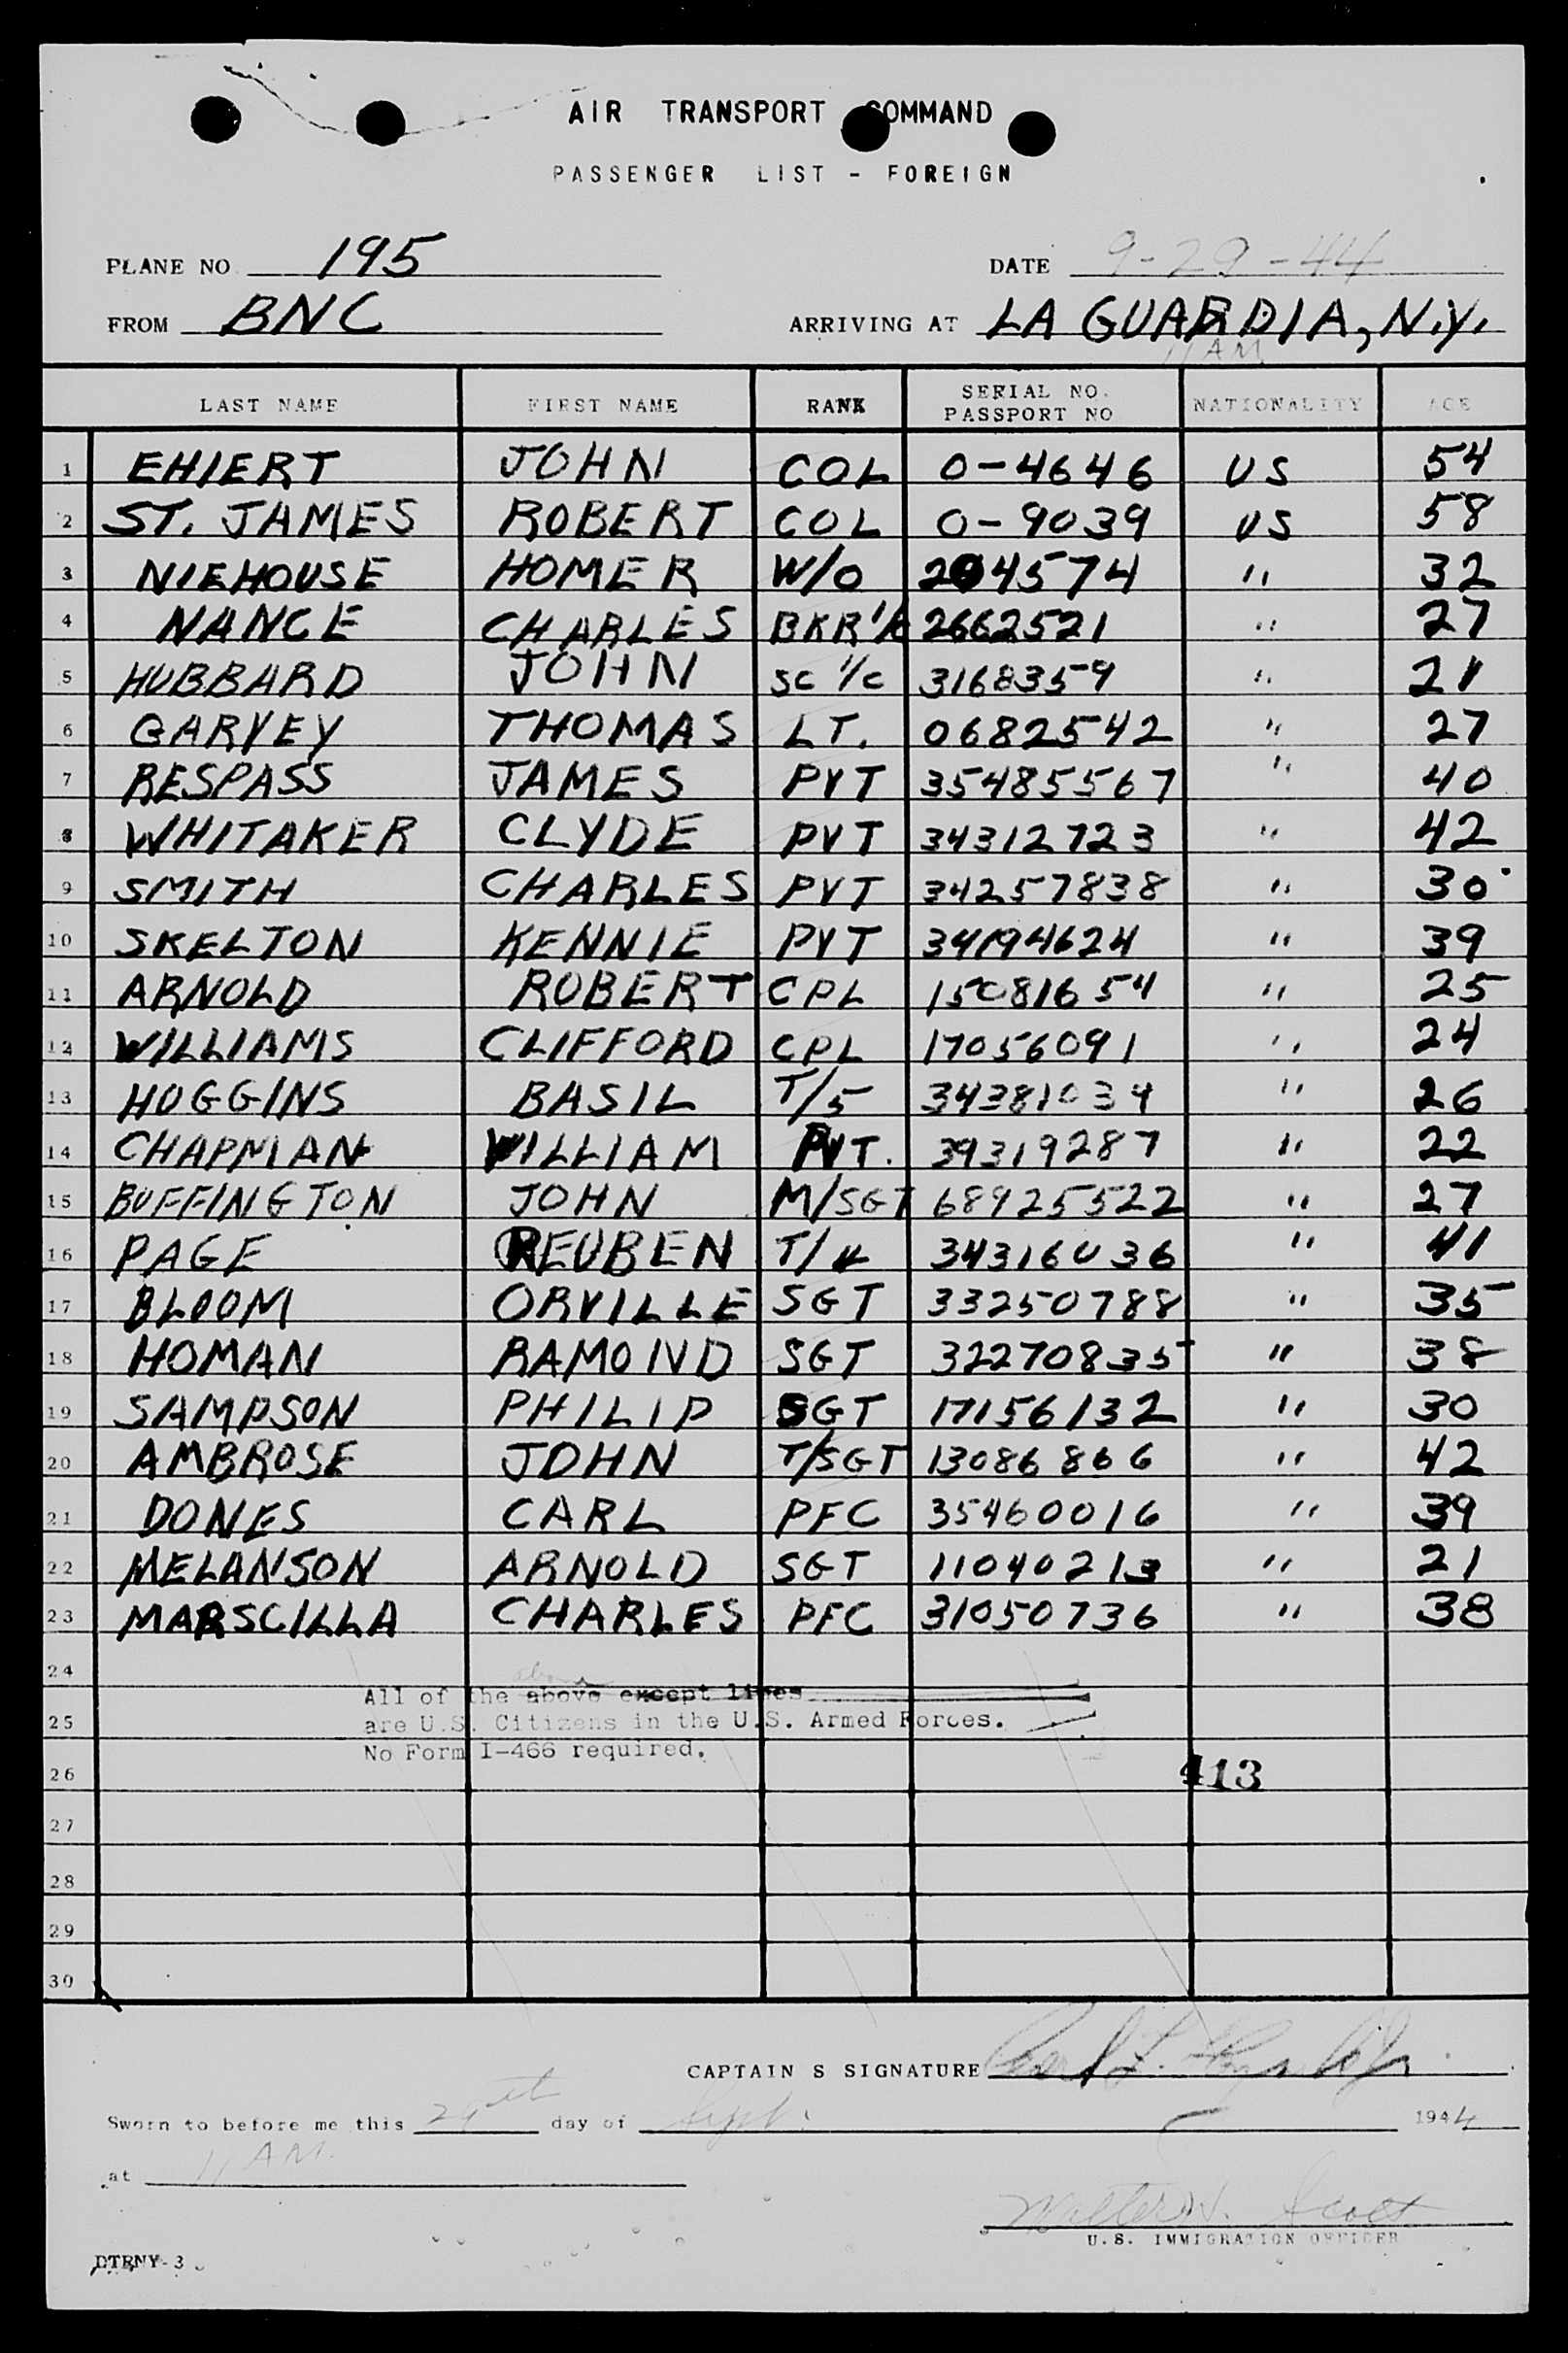 AIR TRANSPORT COMMAND
PASSENGER LIST - FOREIGN
PLANE NO 195 DATE 9-29-44
FROM BNC ARRIVING AT LA GUARDIA, N.Y.
11 AM
LAST NAME FIRST NAME RANK SERIAL NO. PASSPORT NO NATIONALITY AGE
1 EHIERT JOHN COL 0-4646 US 54
2 ST. JAMES ROBERT COL 0-9039 US 58
3 NIEHOUSE HOMER W/O 204574 " 32
4 NANCE CHARLES BKR 1/c 2662521 " 27
5 HUBBARD JOHN SC 1/c 3168359 " 21
6 GARVEY THOMAS LT. 06825542 " 27
7 RESPASS JAMES PVT 35485567 " 40
8 WHITAKER CLYDE PVT 34312723 " 42
9 SMITH CHARLES PVT 34257838 " 30
10 SKELTON KENNIE PVT 34194624 " 39
11 ARNOLD ROBERT CPL 15081654 " 25
12 WILLIAMS CLIFFORD CPL 17056091 " 24
13 HUGGINS BASIL T/5 34381034 " 26
14 CHAPMAN WILLIAM PVT. 39319287 " 22
15 BUFFINGTON JOHN M/SGT 68925522 " 27
16 PAGE REUBEN T/4 34316036 " 41
17 BLOOM ORVILLE SGT 33250788 " 35
18 HOMAN RAMOND SGT 32270835 " 38
19 SAMPSON PHILIP SGT 17156132 " 30
20 AMBROSE JOHN T/SGT 13086866 " 42
21 DONES CARL PFC 35460016 " 39
22 MELANSON ARNOLD SGT 11040213 " 21
23 MARSCILLA CHARLES PFC 31050736 " 38
24
All of the above except lines
25 are U.S. Citizens in the U.S. Armed Forces.
No Form I-466 required.
26 413
27
28
29
30
CAPTAIN S SIGNATURE
Sworn to before me this 29th day of Sept. 1944
at 11 AM.
Walter H. Scott
U.S. IMMIGRATION OFFICER
DTRNY-3